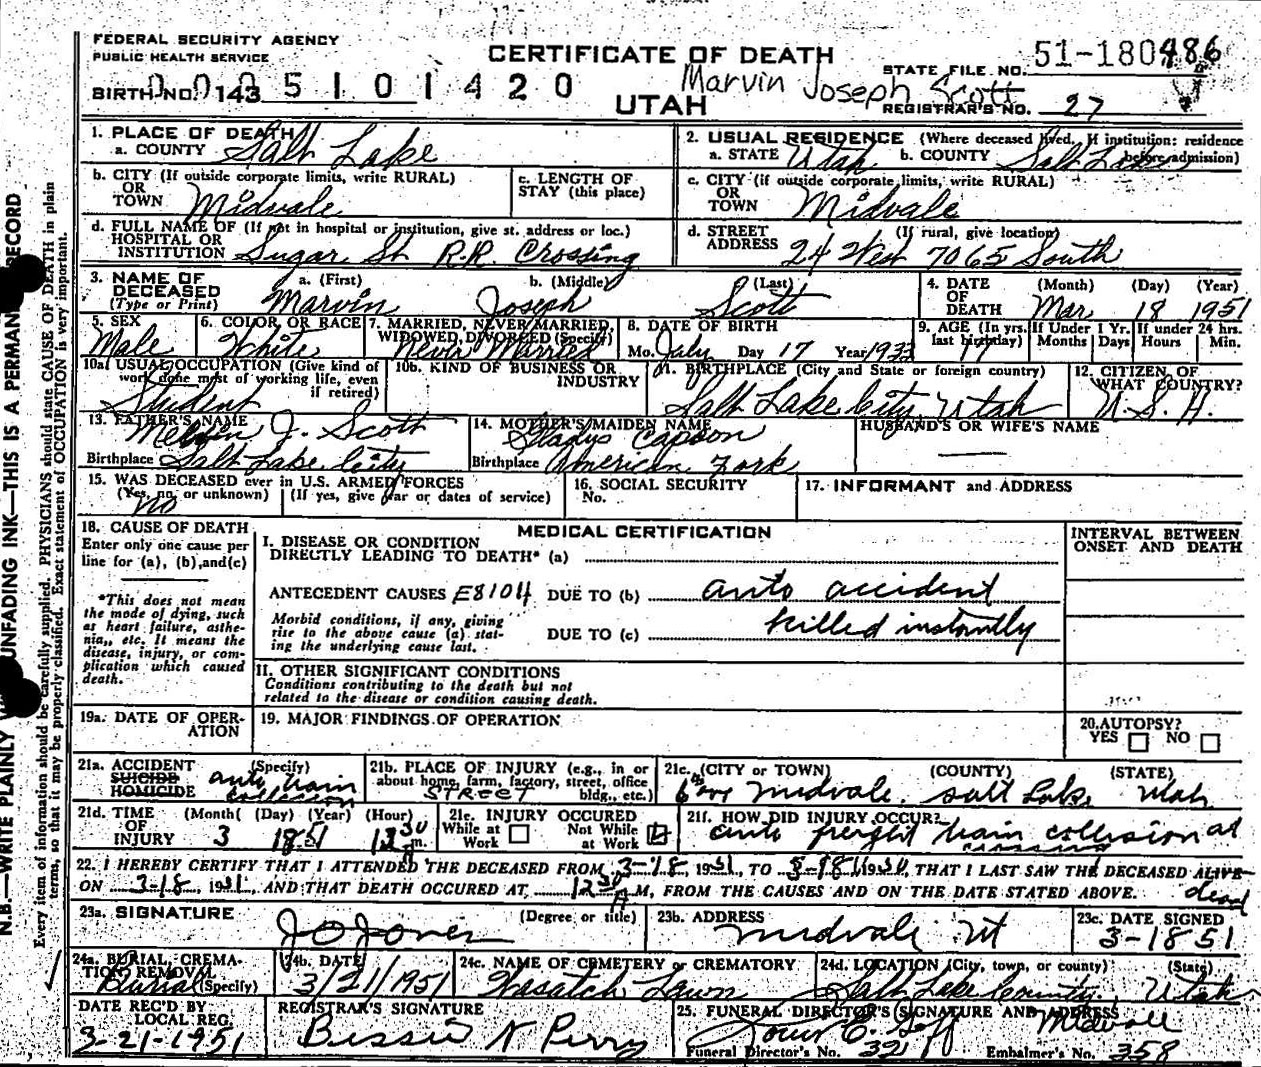 FEDERAL SECURITY AGENCY
PUBLIC HEALTH SERVICE
CERTIFICATE OF DEATH
UTAH
STATE FILE NO. 51-180486
BIRTH NO. 143 0005101420
Marvin Joseph Scott
REGISTRAR'S NO. 27
1. PLACE OF DEATH
a. COUNTY Salt Lake
2. USUAL RESIDENCE (Where deceased lived. If institution: residence before admission)
a. STATE Utah b. COUNTY Salt Lake
b. CITY (If outside corporate limits, write RURAL) OR TOWN Midvale
c. LENGTH OF STAY (this place)
c. CITY (if outside corporate limits, write RURAL) OR TOWN Midvale
d. FULL NAME OF (If not in hospital or institution, give st. address or loc.) HOSPITAL OR INSTITUTION Sugar St R.R. Crossing
d. STREET ADDRESS (If rural, give location) 24 West 7065 South
3. NAME OF DECEASED (Type or Print)
a. (First) Marvin b. (Middle) Joseph (Last) Scott
4. DATE OF DEATH (Month) (Day) (Year) Mar. 18 1951
5. SEX Male
6. COLOR OR RACE White
7. MARRIED, NEVER MARRIED, WIDOWED, DIVORCED (Specify) Never Married
8. DATE OF BIRTH Mo. July Day 17 Year 1933
9. AGE (In yrs. last birthday) 17
If Under 1 Yr. Months Days
If under 24 hrs. Hours Min.
10a. USUAL OCCUPATION (Give kind of work done most of working life, even if retired) Student
10b. KIND OF BUSINESS OR INDUSTRY
11. BIRTHPLACE (City and State or foreign country) Salt Lake City, Utah
12. CITIZEN OF WHAT COUNTRY? U.S.A.
13. FATHER'S NAME Melvin J. Scott
Birthplace Salt Lake City
14. MOTHER'S MAIDEN NAME Gladys Capson
Birthplace American Fork
HUSBAND'S OR WIFE'S NAME
15. WAS DECEASED ever in U.S. ARMED FORCES
(Yes, no, or unknown) No
(If yes, give war or dates of service)
16. SOCIAL SECURITY No.
17. INFORMANT and ADDRESS
18. CAUSE OF DEATH
Enter only one cause per line for (a), (b), and (c)
*This does not mean the mode of dying, such as heart failure, asthenia, etc. It means the disease, injury, or complication which caused death.
MEDICAL CERTIFICATION
INTERVAL BETWEEN ONSET AND DEATH
I. DISEASE OR CONDITION DIRECTLY LEADING TO DEATH* (a)
ANTECEDENT CAUSES E8104 DUE TO (b) auto accident
Morbid conditions, if any, giving rise to the above cause (a) stating the underlying cause last.
DUE TO (c) killed instantly
II. OTHER SIGNIFICANT CONDITIONS
Conditions contributing to the death but not related to the disease or condition causing death.
19a. DATE OF OPERATION
19. MAJOR FINDINGS OF OPERATION
20. AUTOPSY? YES NO
21a. ACCIDENT SUICIDE HOMICIDE (Specify) auto train collision
21b. PLACE OF INJURY (e.g., in or about home, farm, factory, street, office bldg., etc.) STREET
21c. (CITY or TOWN) (COUNTY) (STATE)
6th ave Midvale. Salt Lake Utah
21d. TIME OF INJURY (Month) (Day) (Year) (Hour) 3 18 51 12 30 m.
21e. INJURY OCCURED While at Work Not While at Work
21f. HOW DID INJURY OCCUR? auto freight train collision at crossing
22. I HEREBY CERTIFY THAT I ATTENDED THE DECEASED FROM 3-18, 1951, TO 3-18, 1951, THAT I LAST SAW THE DECEASED ALIVE dead
ON 3-18, 1951, AND THAT DEATH OCCURED AT 12 30 A M, FROM THE CAUSES AND ON THE DATE STATED ABOVE.
23a. SIGNATURE (Degree or title) J O Jones
23b. ADDRESS Midvale Ut
23c. DATE SIGNED 3-18 51
24a. BURIAL, CREMATION, REMOVAL (Specify) Burial
24b. DATE 3/21/1951
24c. NAME OF CEMETERY or CREMATORY Wasatch Lawn
24d. LOCATION (City, town, or county) (State) Salt Lake County Utah
DATE REC'D BY LOCAL REG. 3-21-1951
REGISTRAR'S SIGNATURE Bessie N Perry
25. FUNERAL DIRECTOR'S (SIGNATURE AND ADDRESS) Goff Midvale
Funeral Director's No. 321 Embalmer's No. 358
N.B.—WRITE PLAINLY UNFADING INK—THIS IS A PERMAN RECORD
Every item of information should be carefully supplied. PHYSICIANS should state CAUSE OF DEATH in plain
terms, so that it may be properly classified. Exact statement of OCCUPATION is very important.